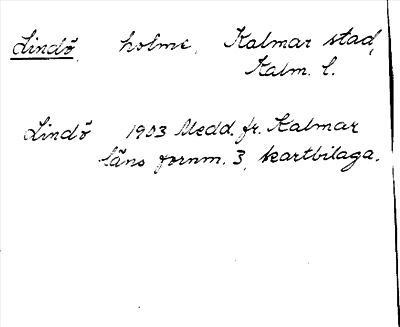 Lindö. holme, Kalmar stad,
Kalm. l.
Lindö 1903 Medd. fr. Kalmar
läns fornm. 3, kartbilaga.